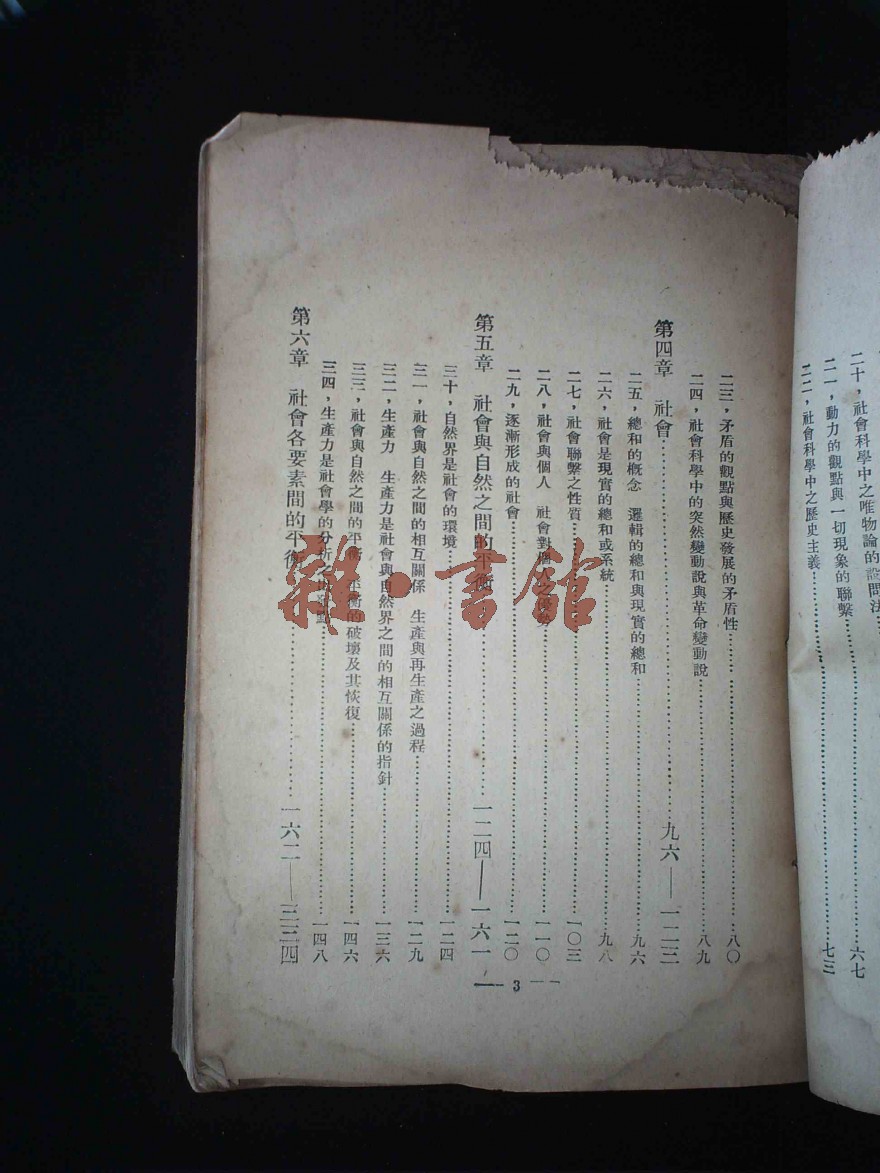 二十，社會科學中之唯物論的設問法
六七
二一，動力的觀點與一切現象的聯繫
七三
二二，社會科學中之歷史主義
二三，矛盾的觀點與歷史發展的矛盾性 八〇
二四，社會科學中的突然變動說與革命變動說 八九
第四章 社會 九六—一二三
二五，總和的概念 邏輯的總和與現實的總和 九六
二六，社會是現實的總和或系統 九八
二七，社會聯繫之性質 一〇三
二八，社會與個人 社會對個人之優勢 一一〇
二九，逐漸形成的社會 一二〇
第五章 社會與自然之間的平衡 一二四—一六一
三十，自然界是社會的環境 一二四
三一，社會與自然之間的相互關係 生產與再生產之過程 一二九
三二，生產力 生產力是社會與自然界之間的相互關係的指針 一三六
三三，社會與自然之間的平衡 平衡的破壞及其恢復 一四六
三四，生產力是社會學的分析之出發點 一四八
第六章 社會各要素間的平衡 一六二—三三四
— 3 —
雜·書館